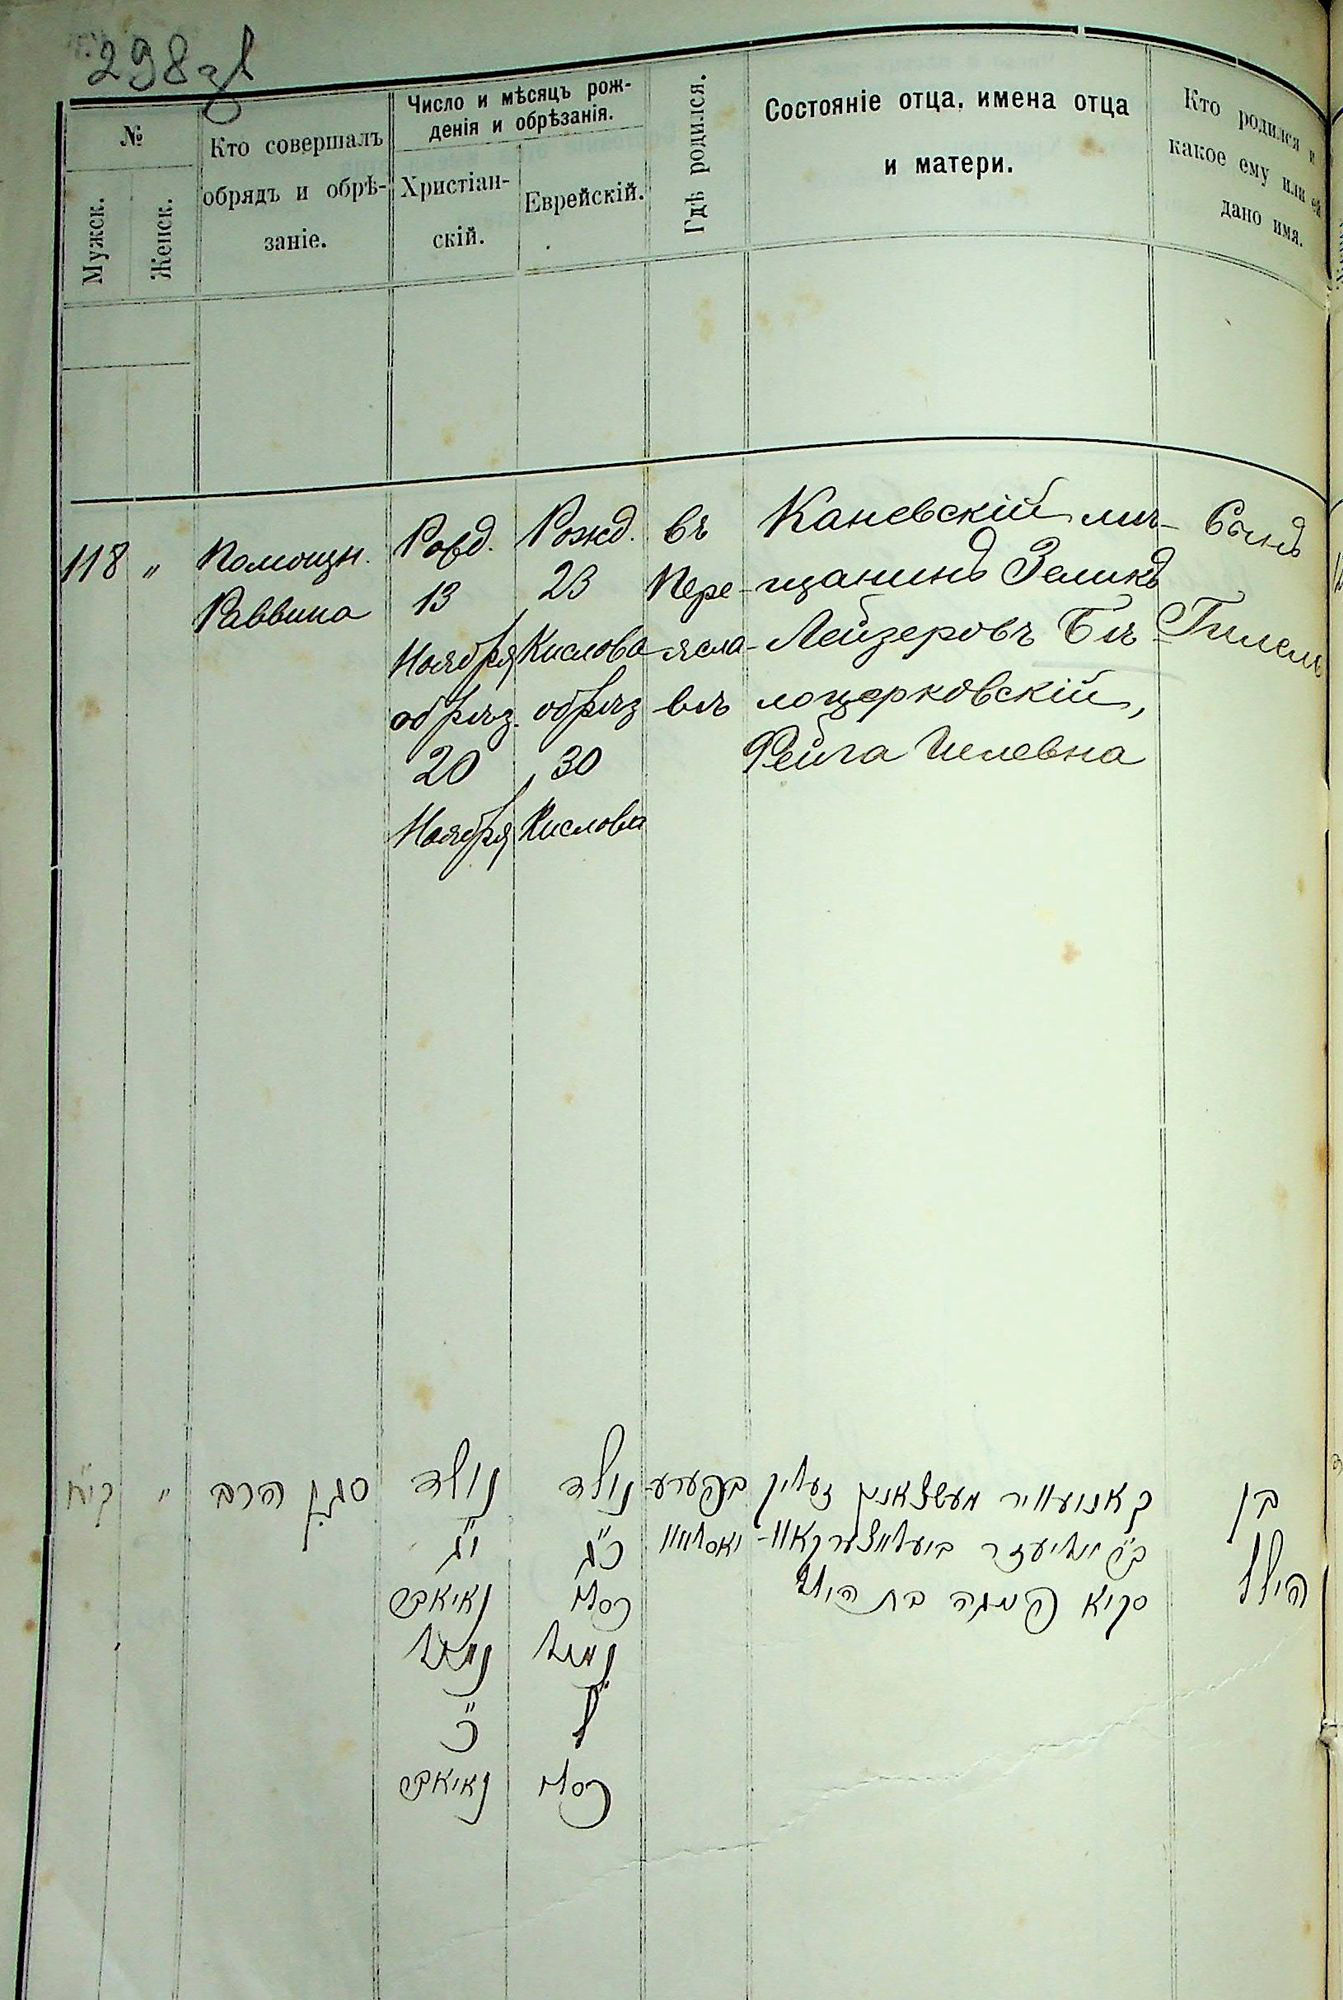 298 зв
№
Мужск.
Женск.
Кто совершалъ
обрядъ и обрѣ-
заніе.
Число и мѣсяцъ рож-
денія и обрѣзанія.
Христіан-
скій.
Еврейскій.
Гдѣ родился.
Состояніе отца, имена отца
и матери.
Кто родился и
какое ему или ей
дано имя.
118
"
Помощн.
Раввина
Рожд.
13
Ноября
обрѣз.
20
Ноября
Рожд.
23
Кислова
обрѣз
30
Кислова
въ
Пере-
ясла-
влѣ
Каневскій мѣ-
щанинъ Зеликъ
Лейзеровъ Бѣ-
лоцерковскій,
Фейга Гилевна
Сынъ
Гилель
קי"ח
"
סגן הרב
נולד
י"ג
נאיאבר
נימול
כ"
נאיאבר
נולד
כ"ג
כסלו
נימול
ל"
כסלו
בפערע-
יאסלאוו
קאנועוויר מעשצאנין זעליק
ב"ר אליעזר ביעלאצערקאוו-
סקיא פייגה בת הילל
בן
הילל